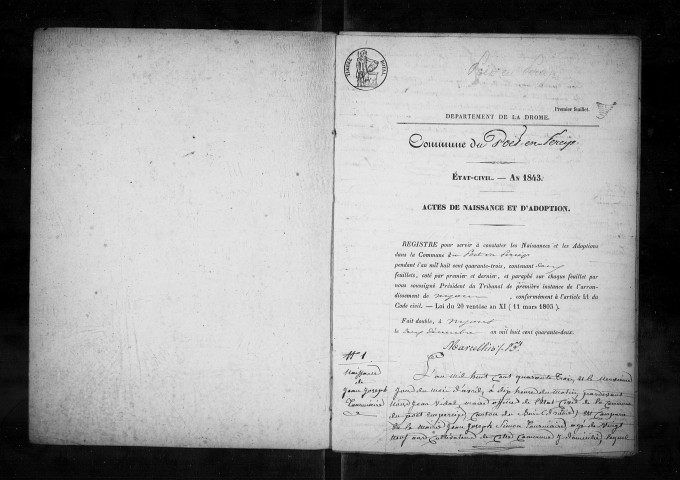 TIMBRE ROYAL
Premier feuillet.
DÉPARTEMENT DE LA DROME.
Commune du Poët-en-Percip
ÉTAT-CIVIL. — AN 1843.
ACTES DE NAISSANCE ET D'ADOPTION.
REGISTRE pour servir à constater les Naissances et les Adoptions
dans la Commune du Poët en Percip
pendant l'an mil huit cent quarante-trois, contenant deux
feuillets, coté par premier et dernier, et paraphé sur chaque feuillet par
nous soussigné Président du Tribunal de première instance de l'arron-
dissement de Nyons, conformément à l'article 41 du
Code civil. — Loi du 20 ventôse an XI (11 mars 1803).
Fait double, à Nyons
le deux décembre an mil huit cent quarante-deux.
N° 1
Naissance
de
Jean Joseph
Tournaire
L'an mil huit cent quarante trois, et le
jour du mois d'avril, à dix heures du matin, pardevant
Nous Jean Vidal, maire officier de l'état civil de la Commune
du poët en percip Canton du Buis (Drome) est comparu
en la mairie Jean Joseph Simon Tournaire agé de vingt
neuf ans Cultivateur de cette Commune y domicilié lequel